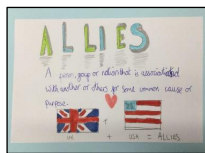 ALLIES
A person, group or nation that is associated
with another or others for some common cause or
purpose.
+
UK + USA = ALLIES